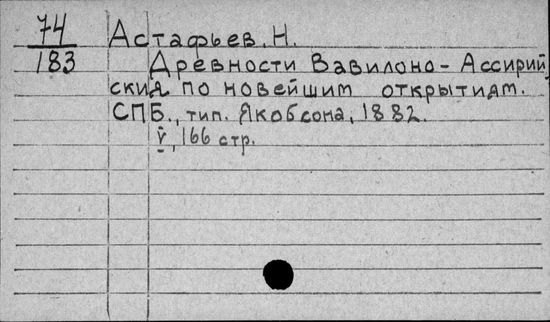 74
183
Астафьев. Н.
Древности Вавилоно-Ассирий
ския по новейшим открытиям.
СПБ., тип. Якобсона, 1882.
V, 166 стр.